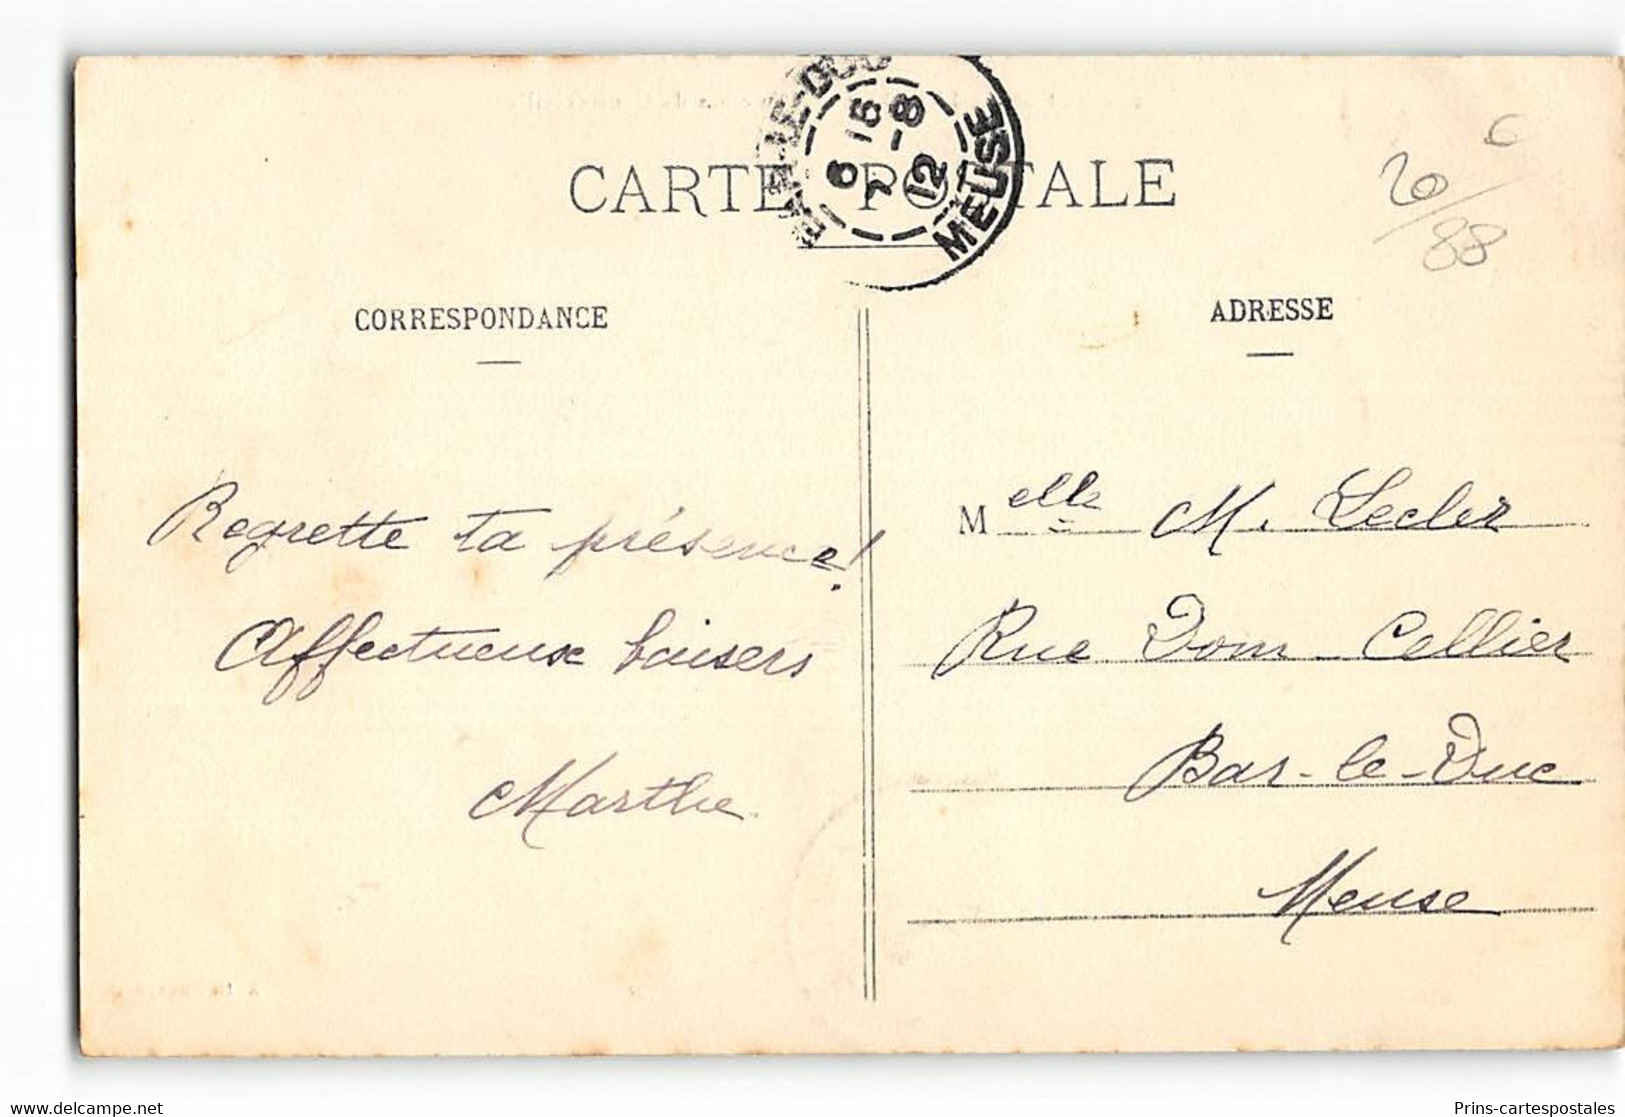 BAR-LE-DUC
6 15
7 -8
12
MEUSE
CARTE POSTALE
6
20/88
CORRESPONDANCE
ADRESSE
Regrette ta présence!
Affectueux baisers
Marthe
Melle M. Lecler
Rue Dom Cellier
Bar-le-Duc
Meuse
www.delcampe.net
Prins-cartespostales